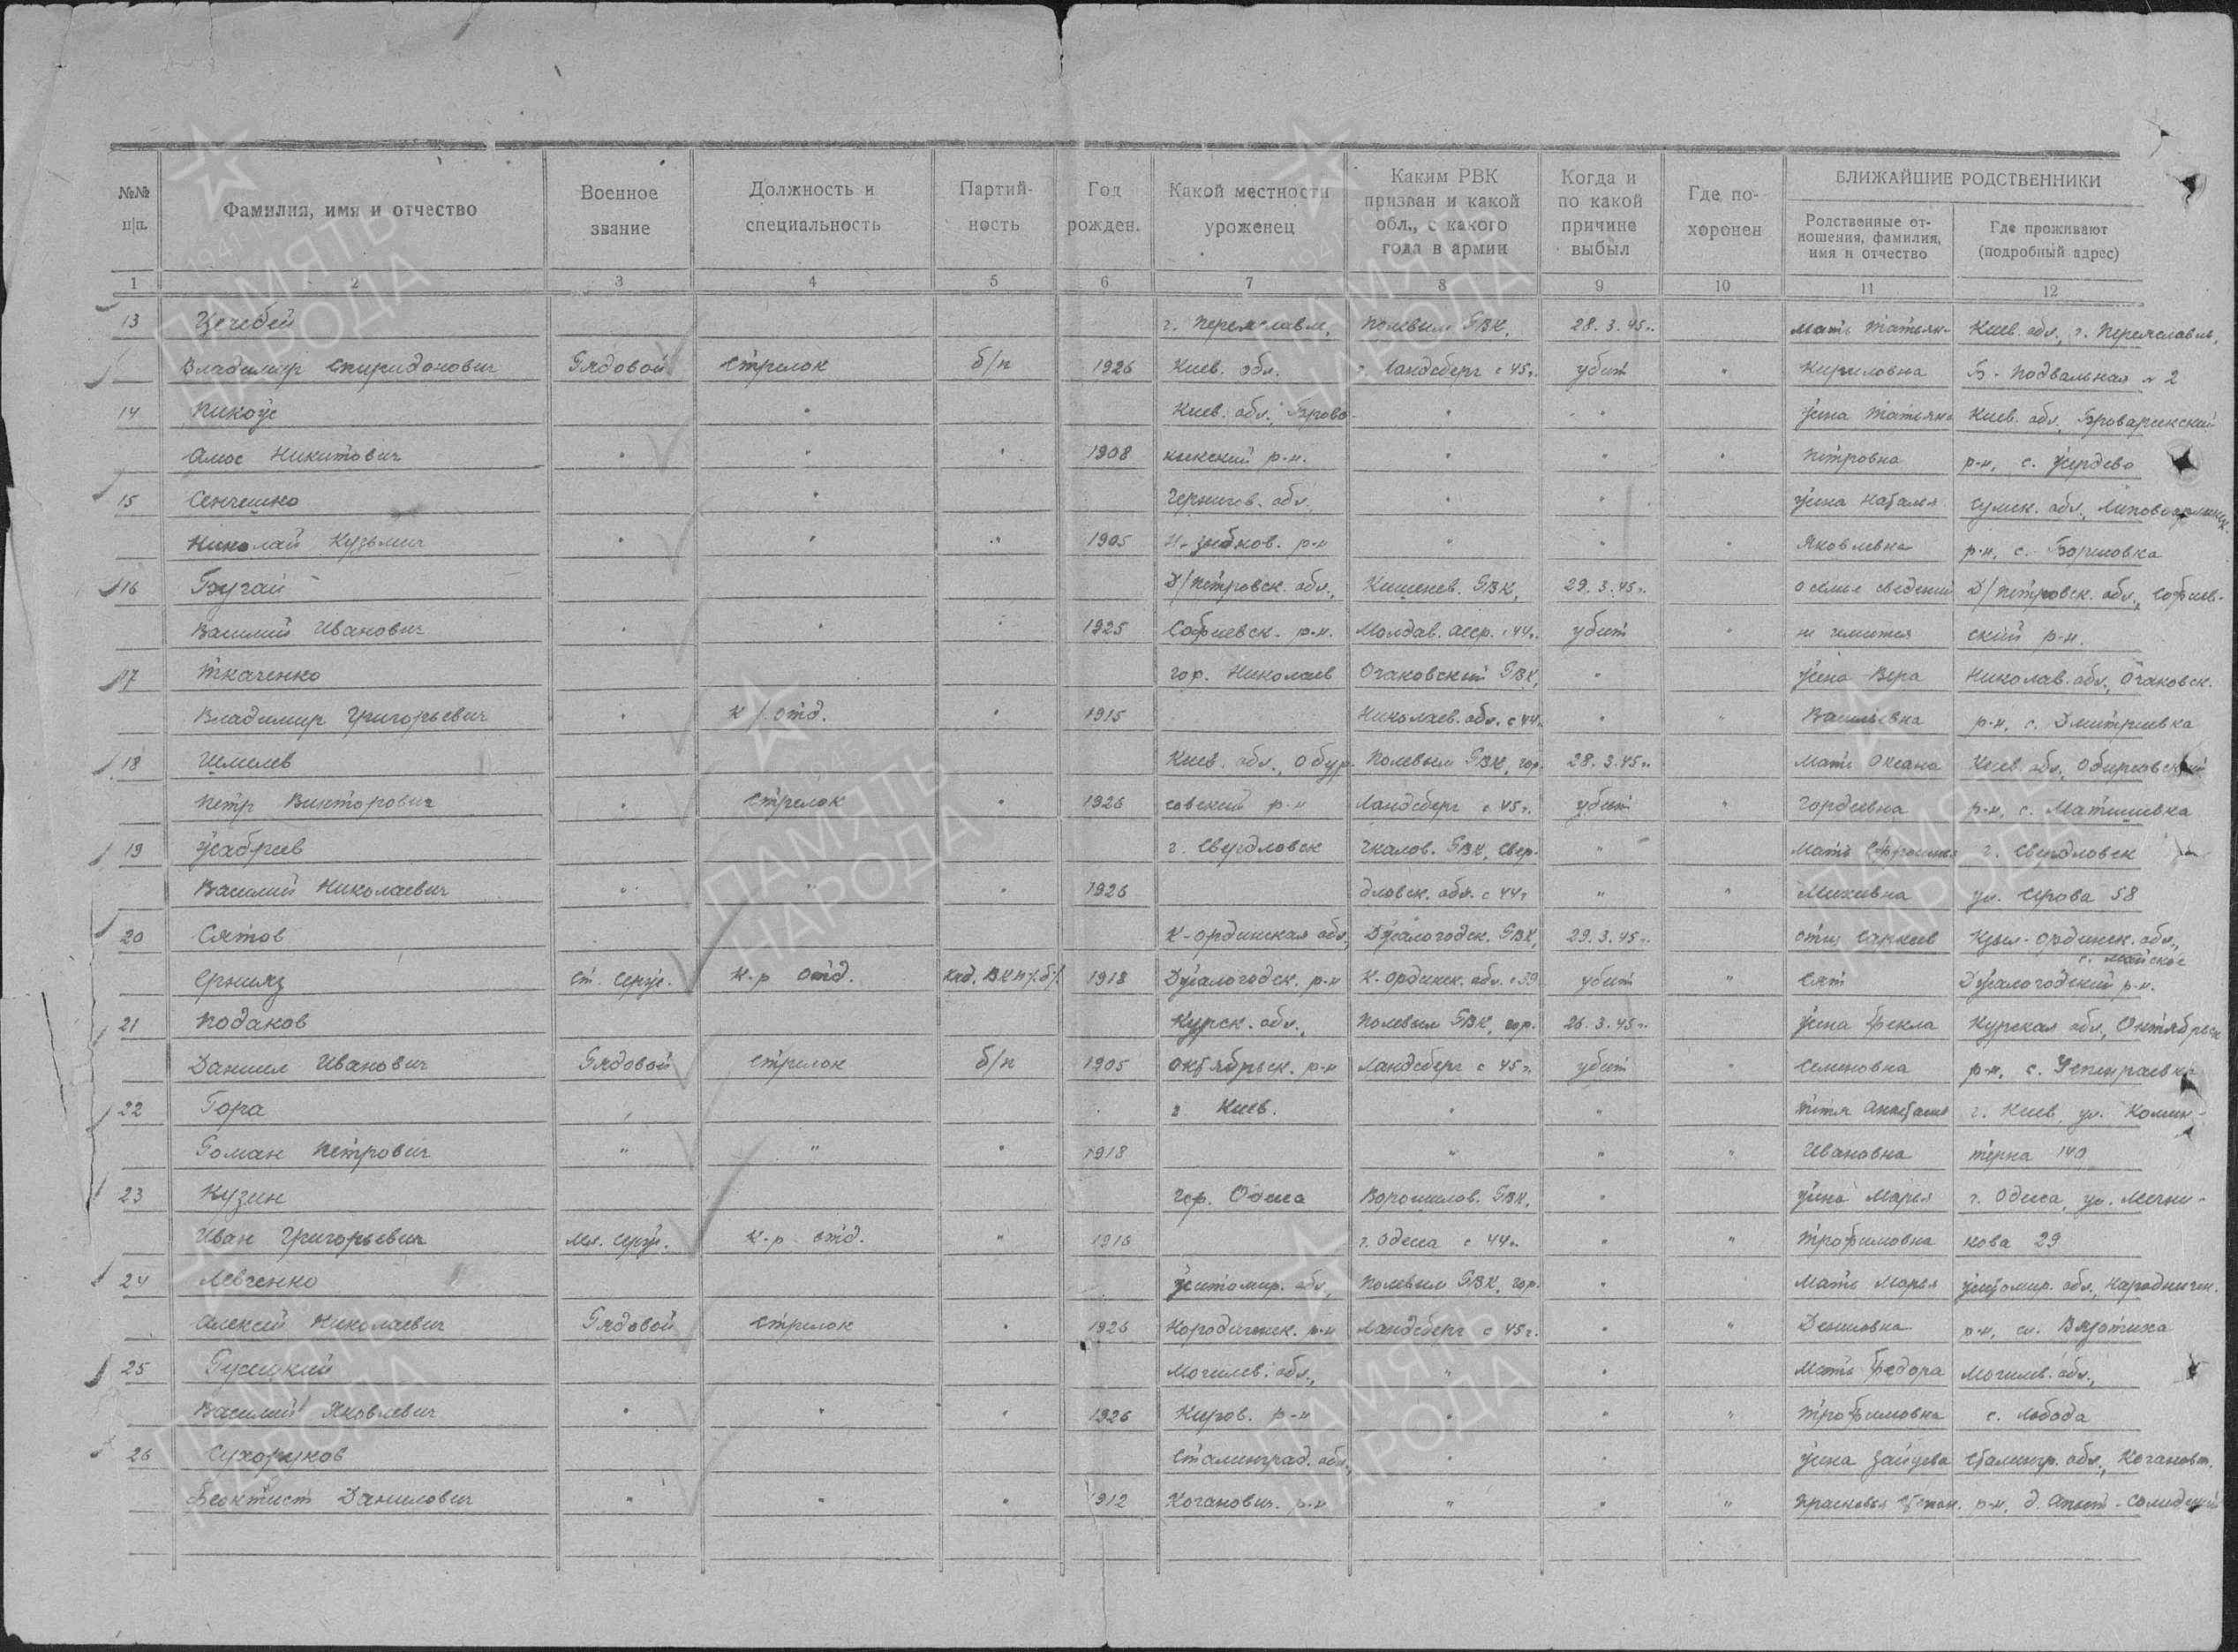 №№ п/п.
Фамилия, имя и отчество
Военное звание
Должность и специальность
Партийность
Год рожден.
Какой местности уроженец
Каким РВК призван и какой обл., с какого года в армии
Когда и по какой причине выбыл
Где похоронен
БЛИЖАЙШИЕ РОДСТВЕННИКИ
Родственные отношения, фамилия, имя и отчество
Где проживают (подробный адрес)
1 2 3 4 5 6 7 8 9 10 11 12
13 Цечебей г. Переяславль, Полевым РВК, 28.3.45г. мать Татьян- Киев. обл., г. Переяславль,
Владимир Спиридонович Рядовой стрелок б/п 1926 Киев. обл. г. Ландсберг с 45г. убит " Кириловна Б-Подвальная № 2
14 Пикоус " Киев. обл., Брова- " " жена Татьяна Киев. обл., Броварский
Амос Никитович " " " 1908 р-н. " " " Петровна р-н, с.
15 Сенченко " Чернигов. обл. " " жена Наталья Сумск. обл.,
Николай Кузьмич " " " 1905 р-н " " " Яковлевна р-н, с.
16 Бугай Д/Петровск. обл., Кишенев. РВК, 29.3.45г. о семье сведений Д/Петровск. обл., Софиев-
Василий Иванович " " " 1925 Софиевск. р-н. Молдав. асср. с 44г. убит " не имеется ский р-н.
17 Ткаченко гор. Николаев Очаковский РВК, " жена Вера Николав. обл., Очаковск.
Владимир Григорьевич " к/отд. " 1915 Николаев. обл. с 44г. " " Васильевна р-н, с. Дмитриевка
18 Шмелев Киев. обл., Обух- Полевым РВК, гор. 28.3.45г. мать Оксана Киев. обл.,
Петр Викторович " стрелок " 1926 овский р-н Ландсберг с 45г. убит " Гордеевна р-н, с.
19 Жабреев г. Свердловск Чкалов. РВК, Свер- " мать г. Свердловск
Василий Николаевич " " " 1926 дловск. обл. с 44г " " Михеевна ул. Серова 58
20 Сятов К-ординская обл., РВК, 29.3.45г. отец Кзыл-Ординск. обл.,
с. Майское
Ернияз ст. серж. к-р отд. кад. ВКП/б/ 1918 р-н К-ординск. обл. с 39 убит " Сят р-н.
21 Подаков Курск. обл., Полевым РВК, гор. 26.3.45г. жена Фекла Курская обл., Октябрьск
Даниил Иванович Рядовой стрелок б/п 1905 Октябрьск. р-н Ландсберг с 45г. убит " Семеновна р-н, с.
22 Гора г Киев. " " тетя г. Киев, ул. Комин-
Роман Петрович " " " 1918 " " " Ивановна терна 140
23 Кузин гор. Одесса Ворошилов. РВК, " жена Мария г. Одесса, ул. Мечни-
Иван Григорьевич мл. серж. к-р отд. " 1916 г. Одесса с 44г. " " Трофимовна кова 29
24 Левченко Житомир. обл., Полевым РВК, гор. " мать Марья Житомир. обл., Народичск.
Алексей Николаевич Рядовой стрелок " 1926 Народичск. р-н Ландсберг с 45г. " " Денисовна р-н,
25 Могилев. обл., " " мать Федора Могилев. обл.,
Василий Яковлевич " " " 1926 Киров. р-н " " " Трофимовна с. Лобода
26 Сухоруков Сталинград. обл., " " жена Зайцева Сталингр. обл., Коганович.
Феоктист Данилович " " " 1912 Коганович. р-н " " " Прасковья Степан. р-н, д.
ПАМЯТЬ НАРОДА